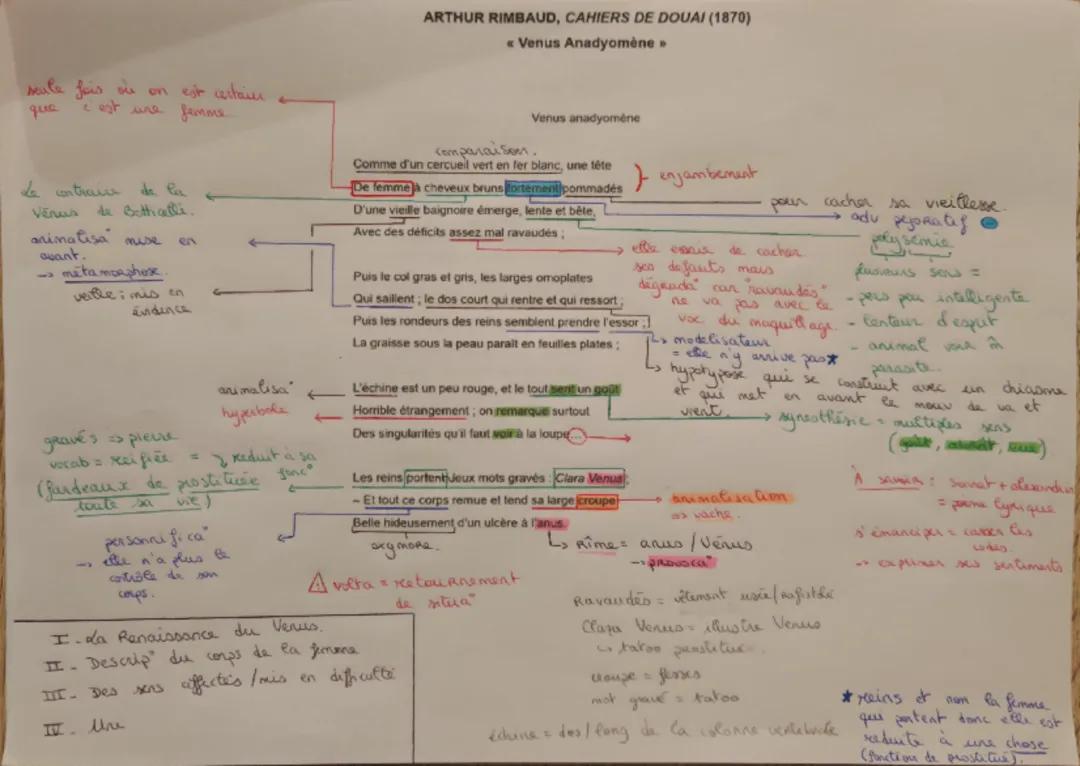 ARTHUR RIMBAUD, CAHIERS DE DOUAI (1870)
« Venus Anadyomène »
seule fois où on est certain
que c'est une femme
Venus anadyomène
comparaison.
Comme d'un cercueil vert en fer blanc, une tête
De femme à cheveux bruns fortement pommadés
D'une vieille baignoire émerge, lente et bête,
Avec des déficits assez mal ravaudés ;
enjambement
pour cacher sa vieillesse
adv péjoratif
polysémie
plusieurs sens =
- pers peu intelligente
- lenteur d'esprit
- animal voir m̂
parasite.
Le contraire de la
Vénus de Botticelli.
animalisa° mise en
avant.
-> métamorphose.
vieille : mis en
évidence
elle essaie de cacher
ses défauts mais
dégrada° car "ravaudés"
ne va pas avec le
voc du maquillage.
Puis le col gras et gris, les larges omoplates
Qui saillent ; le dos court qui rentre et qui ressort ;
Puis les rondeurs des reins semblent prendre l'essor ;
La graisse sous la peau paraît en feuilles plates ;
modélisateur
= elle n'y arrive pas*
hypotypose qui se construit avec un chiasme
et qui met en avant le mouv de va et
vient.
animalisa°
hyperbole
L'échine est un peu rouge, et le tout sent un goût
Horrible étrangement ; on remarque surtout
Des singularités qu'il faut voir à la loupe...
synesthésie = multiples sens
(goût, odorat, vue)
gravés => pierre
vocab = réifiée = réduit à sa
fonc°
(fardeaux de prostituée
toute sa vie)
Les reins portent deux mots gravés : Clara Venus ;
– Et tout ce corps remue et tend sa large croupe
Belle hideusement d'un ulcère à l'anus.
animalisation
=> vache.
oxymore.
Rime = anus / Vénus
-> provoca°
personnifica°
-> elle n'a plus le
contrôle de son
corps.
À savoir : sonnet + alexandrin
= poème lyrique
s'émanciper = casser les
codes.
-> exprimer ses sentiments
⚠ volta = retournement
de situa°
I - La Renaissance du Venus.
II - Descrip° du corps de la femme
III - Des sens affectés / mis en difficulté
IV - Une
Ravaudés = vêtement usée / rafistolé
Clara Venus = illustre Venus
tatoo prostitué
croupe = fesses
mot gravé = tatoo
échine = dos / long de la colonne vertébrale
* reins et non la femme
qui portent donc elle est
réduite à une chose
(fonction de prostitué).